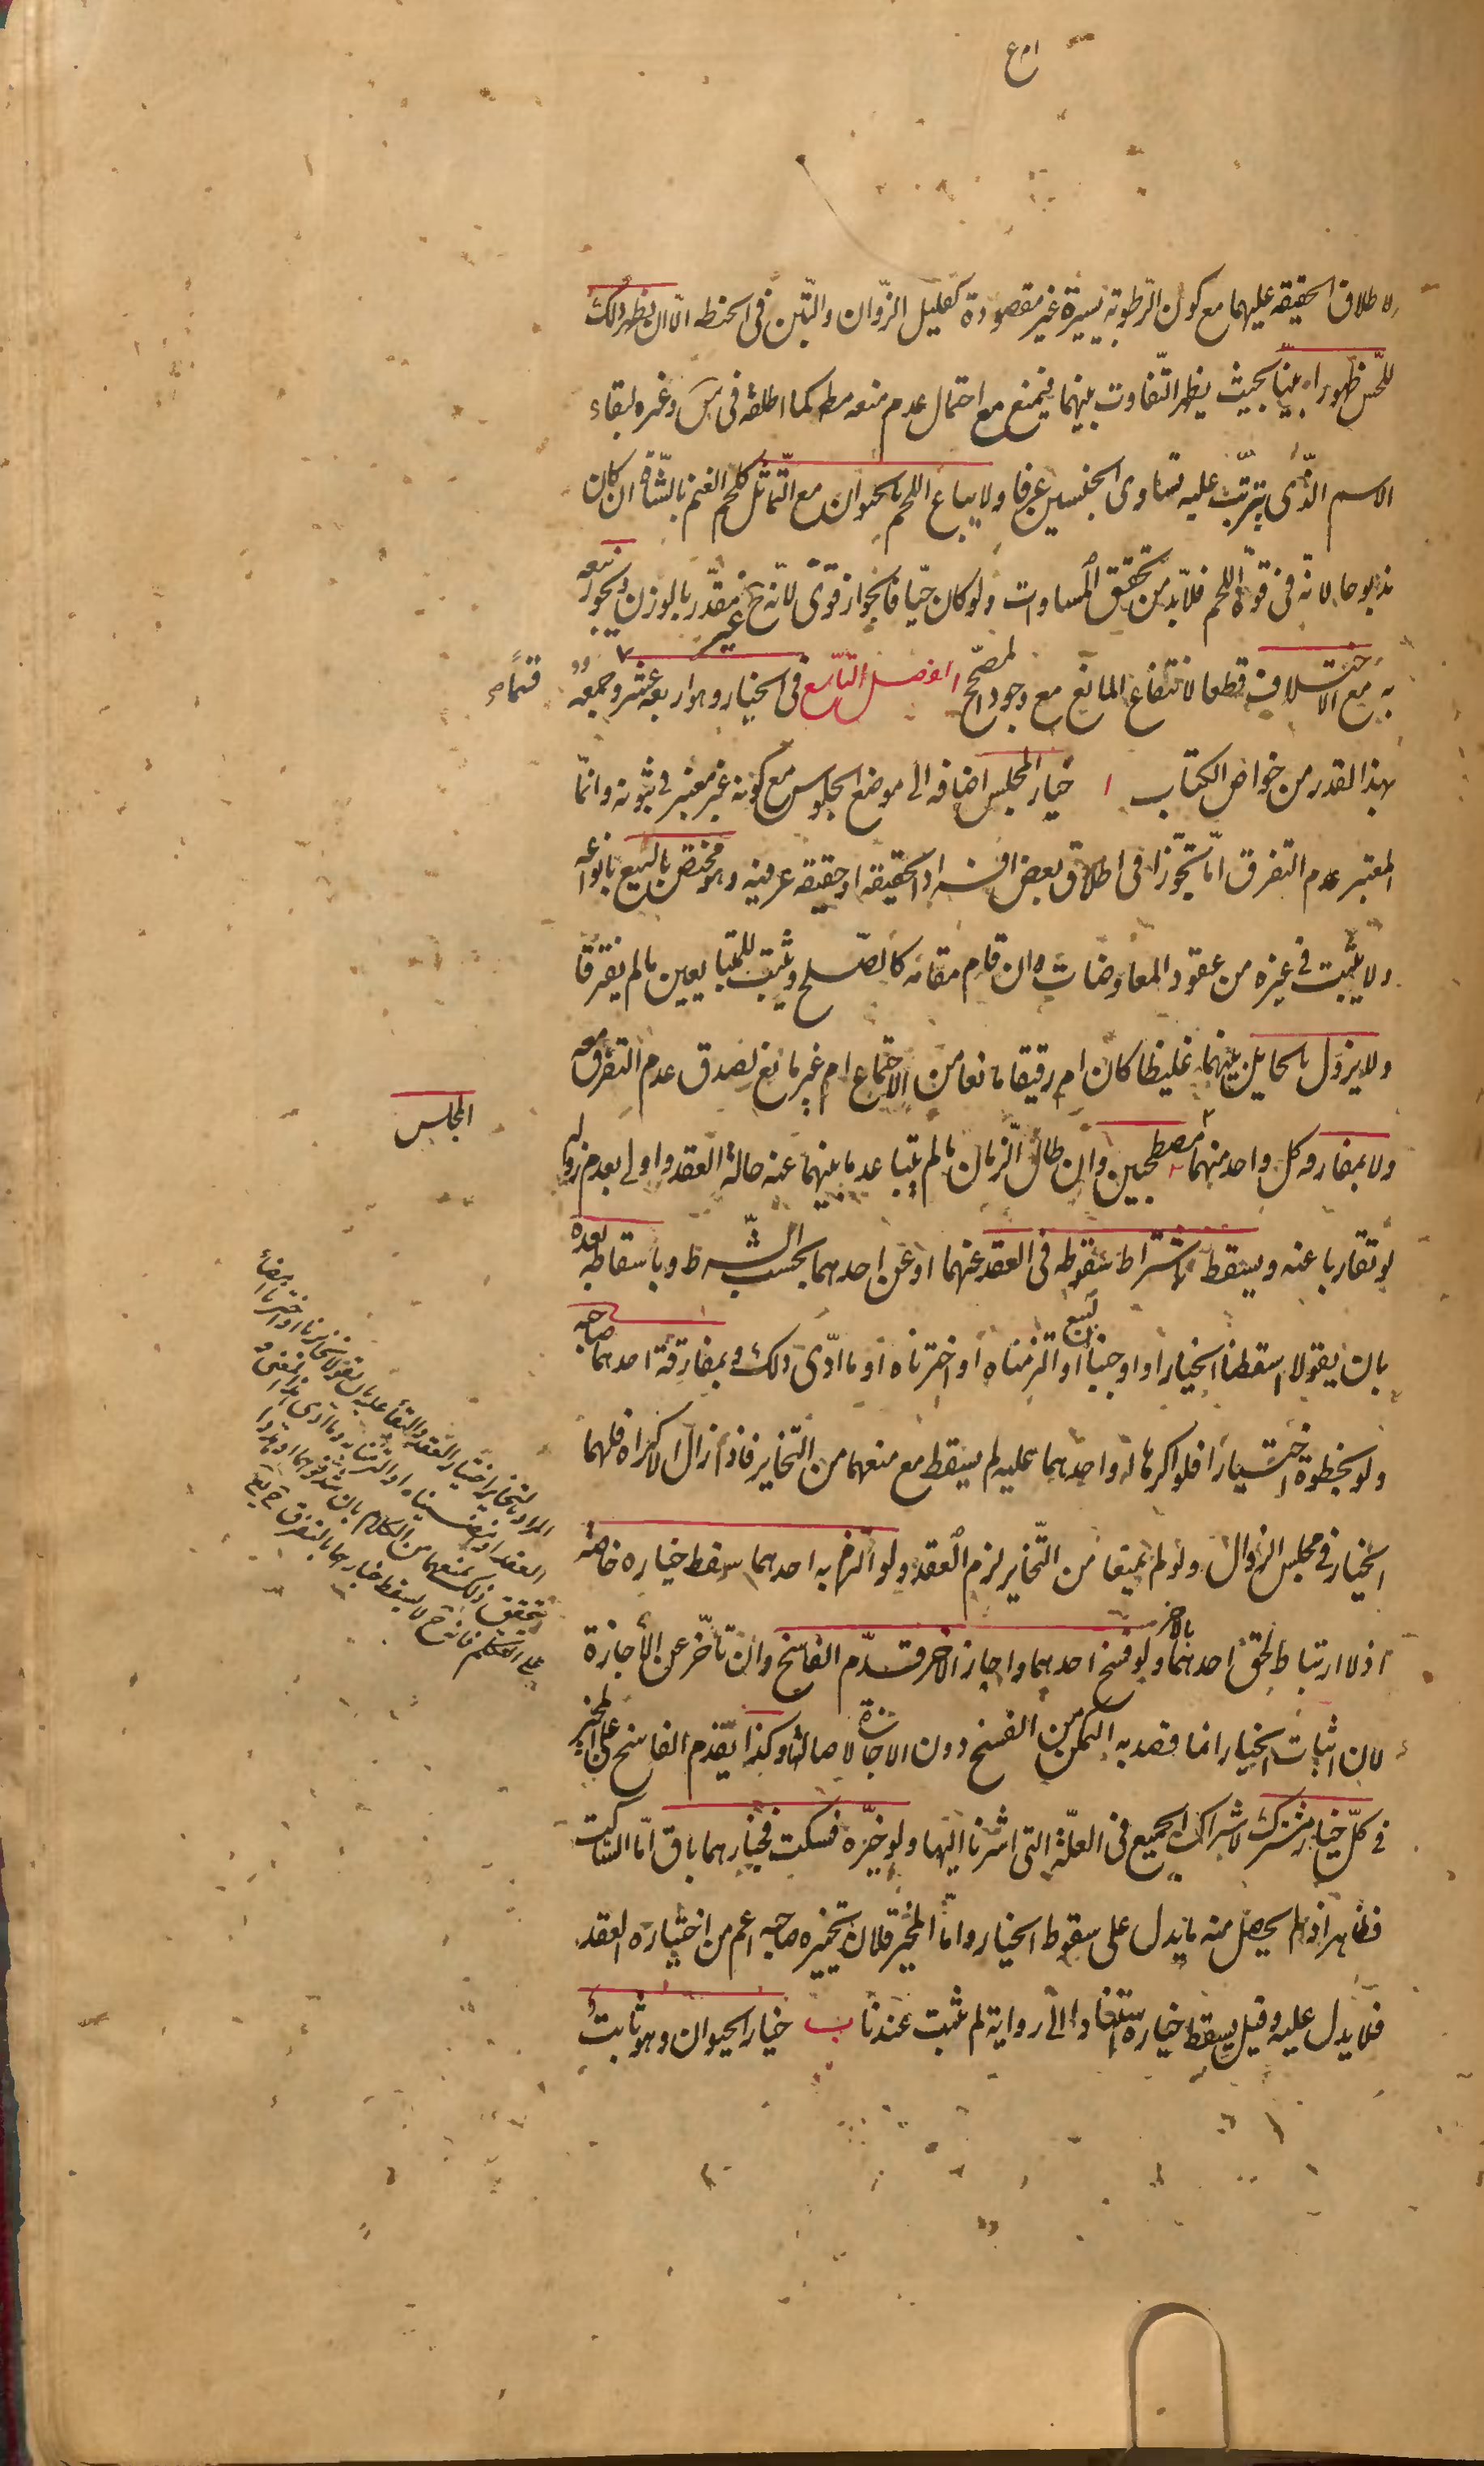 لاطلاق الحقيقه عليهما مع كون الرّطوبة يسيرة غير مقصودة كقليل الزّوان والتّبن فى الحنطه الّا ان يظهر ذلك
للحّس ظهورا بيّنا بحيث يظهر التّفاوت بينهما فيمنع مع احتمال عدم منعه مطر كما اطلقه فى س وغيره لبقاء
الاسم الذّى يترتّب عليه تساوى الجنسين عرفا ولا يباع اللحم بالحيوان مع التّماثل كلحم الغنم بالشّاة ان كان
مذبوحا لانّه فى قوّة اللحم فلابّد من تحقق المساوات ولو كان حيّا فالجواز قوّى لانّه ح غير مقدّر بالوزن ويجوز بيعه
به مع الاختلاف قطعا لانتفاع المانع مع وجود المصحّح الفصل التّاسع فى الخيار وهو اربعة عشر قسما وجمعه
بهذا القدر من خواص الكتاب ا خيار المجلس اضافه الى موضع الجلوس مع كونه غير معتبر فى ثبوته وانّما
المعتبر عدم التفرق امّا تجّوزا فى اطلاق بعض افراد الحقيقه او حقيقه عرفيه وهو مختص بالبيع بانواعه
ولا يثبت فى غيره من عقود المعاوضات وان قام مقامه كالصّلح ويثبت للمتبايعين ما لم يفترقا
ولا يزول بالحايل بينهما غليظا كان ام رقيقا مانعا من الاجتماع ام غير مانع لصدق عدم التفرّق معه
ولا بمفارقه كل واحد منهما المجلس مصطحبين وان طال الزّمان ما لم يتباعد ما بينهما عنه حالة العقد واولى بعدم زواله
لو تقاربا عنه ويسقط باشتراط سقوطه فى العقد عنهما او عن احدهما بحسب الشّرط وباسقاطه بعده
بان يقولا اسقطنا الخيار او اوجبنا البيع او التزمناه او اخترناه او ما ادّى ذلك وبمفارقة احدهما صاحبه
ولو بخطوة اختيارا فلو اكرها او احدهما عليه لم يسقط مع منعهما من التّخاير فاذا زال الاكراه فلهما
الخيار فى مجلس الزوال ولو لم يمنعا من التّخاير لزم العقد ولو التزم به احدهما سقط خياره خاصّة
اذ لا ارتباط لحق احدهما بالاخر ولو فسخ احدهما واجاز الاخر قدّم الفاسخ وان تاخّر عن الاجازة
لان اثبات الخيار انما قصد به التمكن من الفسخ دون الاجازة لاصالتها وكذا يقدم الفاسخ على المجيز
فى كلّ خيار مشترك لاشتراك الجميع فى العلّة التى اشرنا اليها ولو خيّره فسكت فخيارهما باق امّا الساكت
فظاهر اذ لم يحصل منه ما يدل على سقوط الخيار وامّا المخيّر فلان تخييره صاحبه اعم من اختياره العقد
فلا يدل عليه وقيل يسقط خياره استنادا الى رواية لم تثبت عندنا ب خيار الحيوان وهو ثابت
المراد بالتخاير اختيار العقد والبقاء عليه بان يقولا تخايرنا او اخترنا امضاء
العقد او امضيناه او التزمنا به وما ادى هذا المعنى و
يتحقق ذلك بمنعهما من الكلام بان
على التكلم فانه ح لا يسقط خيارهما بالتفرق